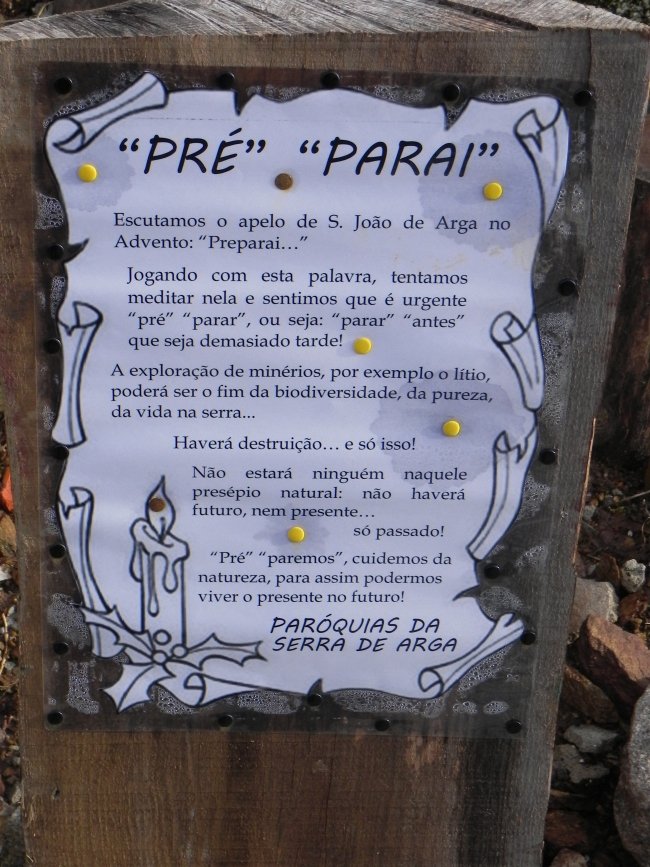 “PRÉ” “PARAI”
Escutamos o apelo de S. João de Arga no
Advento: “Preparai…”
Jogando com esta palavra, tentamos
meditar nela e sentimos que é urgente
“pré” “parar”, ou seja: “parar” “antes”
que seja demasiado tarde!
A exploração de minérios, por exemplo o lítio,
poderá ser o fim da biodiversidade, da pureza,
da vida na serra...
Haverá destruição… e só isso!
Não estará ninguém naquele
presépio natural: não haverá
futuro, nem presente…
só passado!
“Pré” “paremos”, cuidemos da
natureza, para assim podermos
viver o presente no futuro!
PARÓQUIAS DA
SERRA DE ARGA